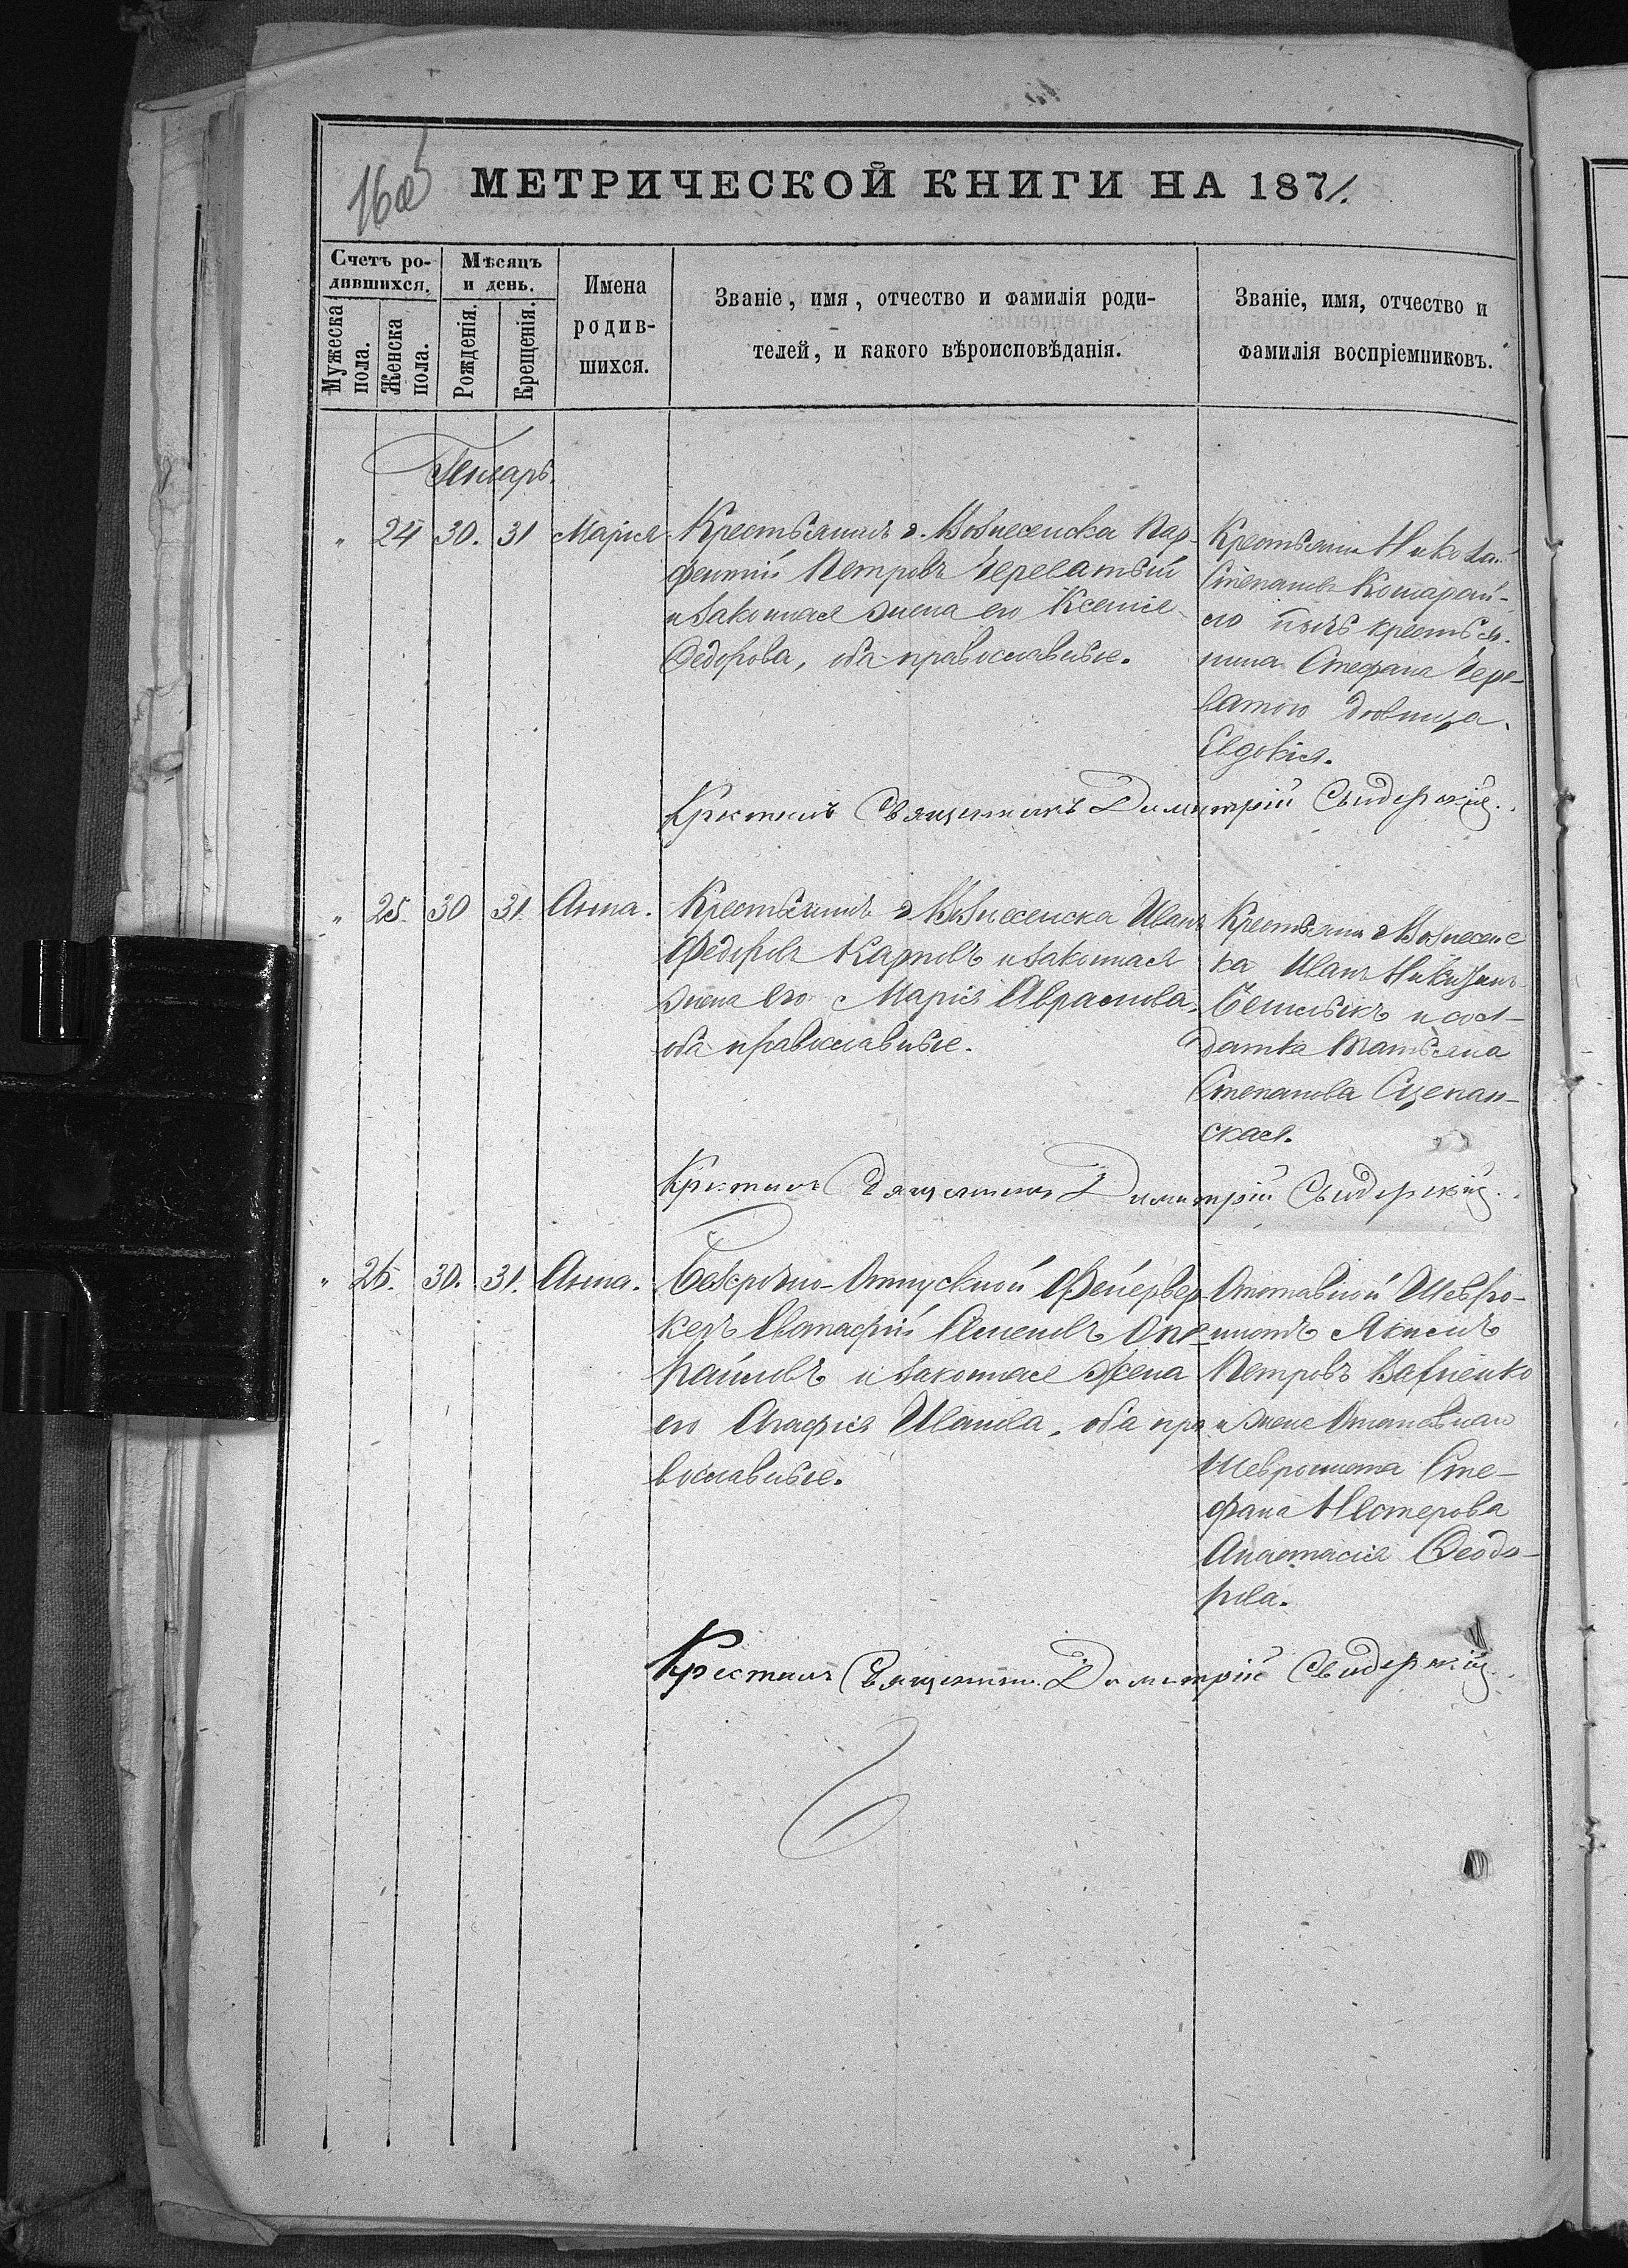 МЕТРИЧЕСКОЙ КНИГИ НА 1871.
Счетъ ро-
дившихся.
Мужеска
пола.
Женска
пола.
Мѣсяцъ
и день.
Рожденія.
Крещенія.
Имена
родив-
шихся.
Званіе, имя, отчество и фамилія роди-
телей, и какого вѣроисповѣданія.
Званіе, имя, отчество и
фамилія воспріемниковъ.
Генварь.
" 24 30. 31 Марія
Крестьянинъ г. Вознесенска Пар-
фентій Петровъ Череватый
и законная жена его Ксенія
Федорова, оба православные.
Крестьянин Николай
Степановъ
крестья-
нина Стефана Чере-
ватого девица
Евдокія.
Крестилъ Священникъ Димитрій Свидерскій.
" 25. 30 31. Анна.
Крестьянинъ г. Вознесенска Иванъ
Федоровъ Карповъ и законная
жена его Марія Аврамова,
оба православные.
Крестьянин г. Вознесенс
ка Иванъ
и сол-
датка Татьяна
Степанова
ская.
Крестилъ Священникъ Димитрій Свидерскій.
" 26. 30. 31. Анна.
Безсрочно-Отпускной Фейервер-
керъ Евстафій Семеновъ
и законная жена
его Агафія Иванова, оба пра
вославные.
Отставной Шевро-
нистъ Якимъ
Петровъ
и жена Отставнаго
Шеврониста Сте-
фана Нестерова
Анастасія Феодо-
рова.
Крестилъ Священник. Димитрій Свидерскій.